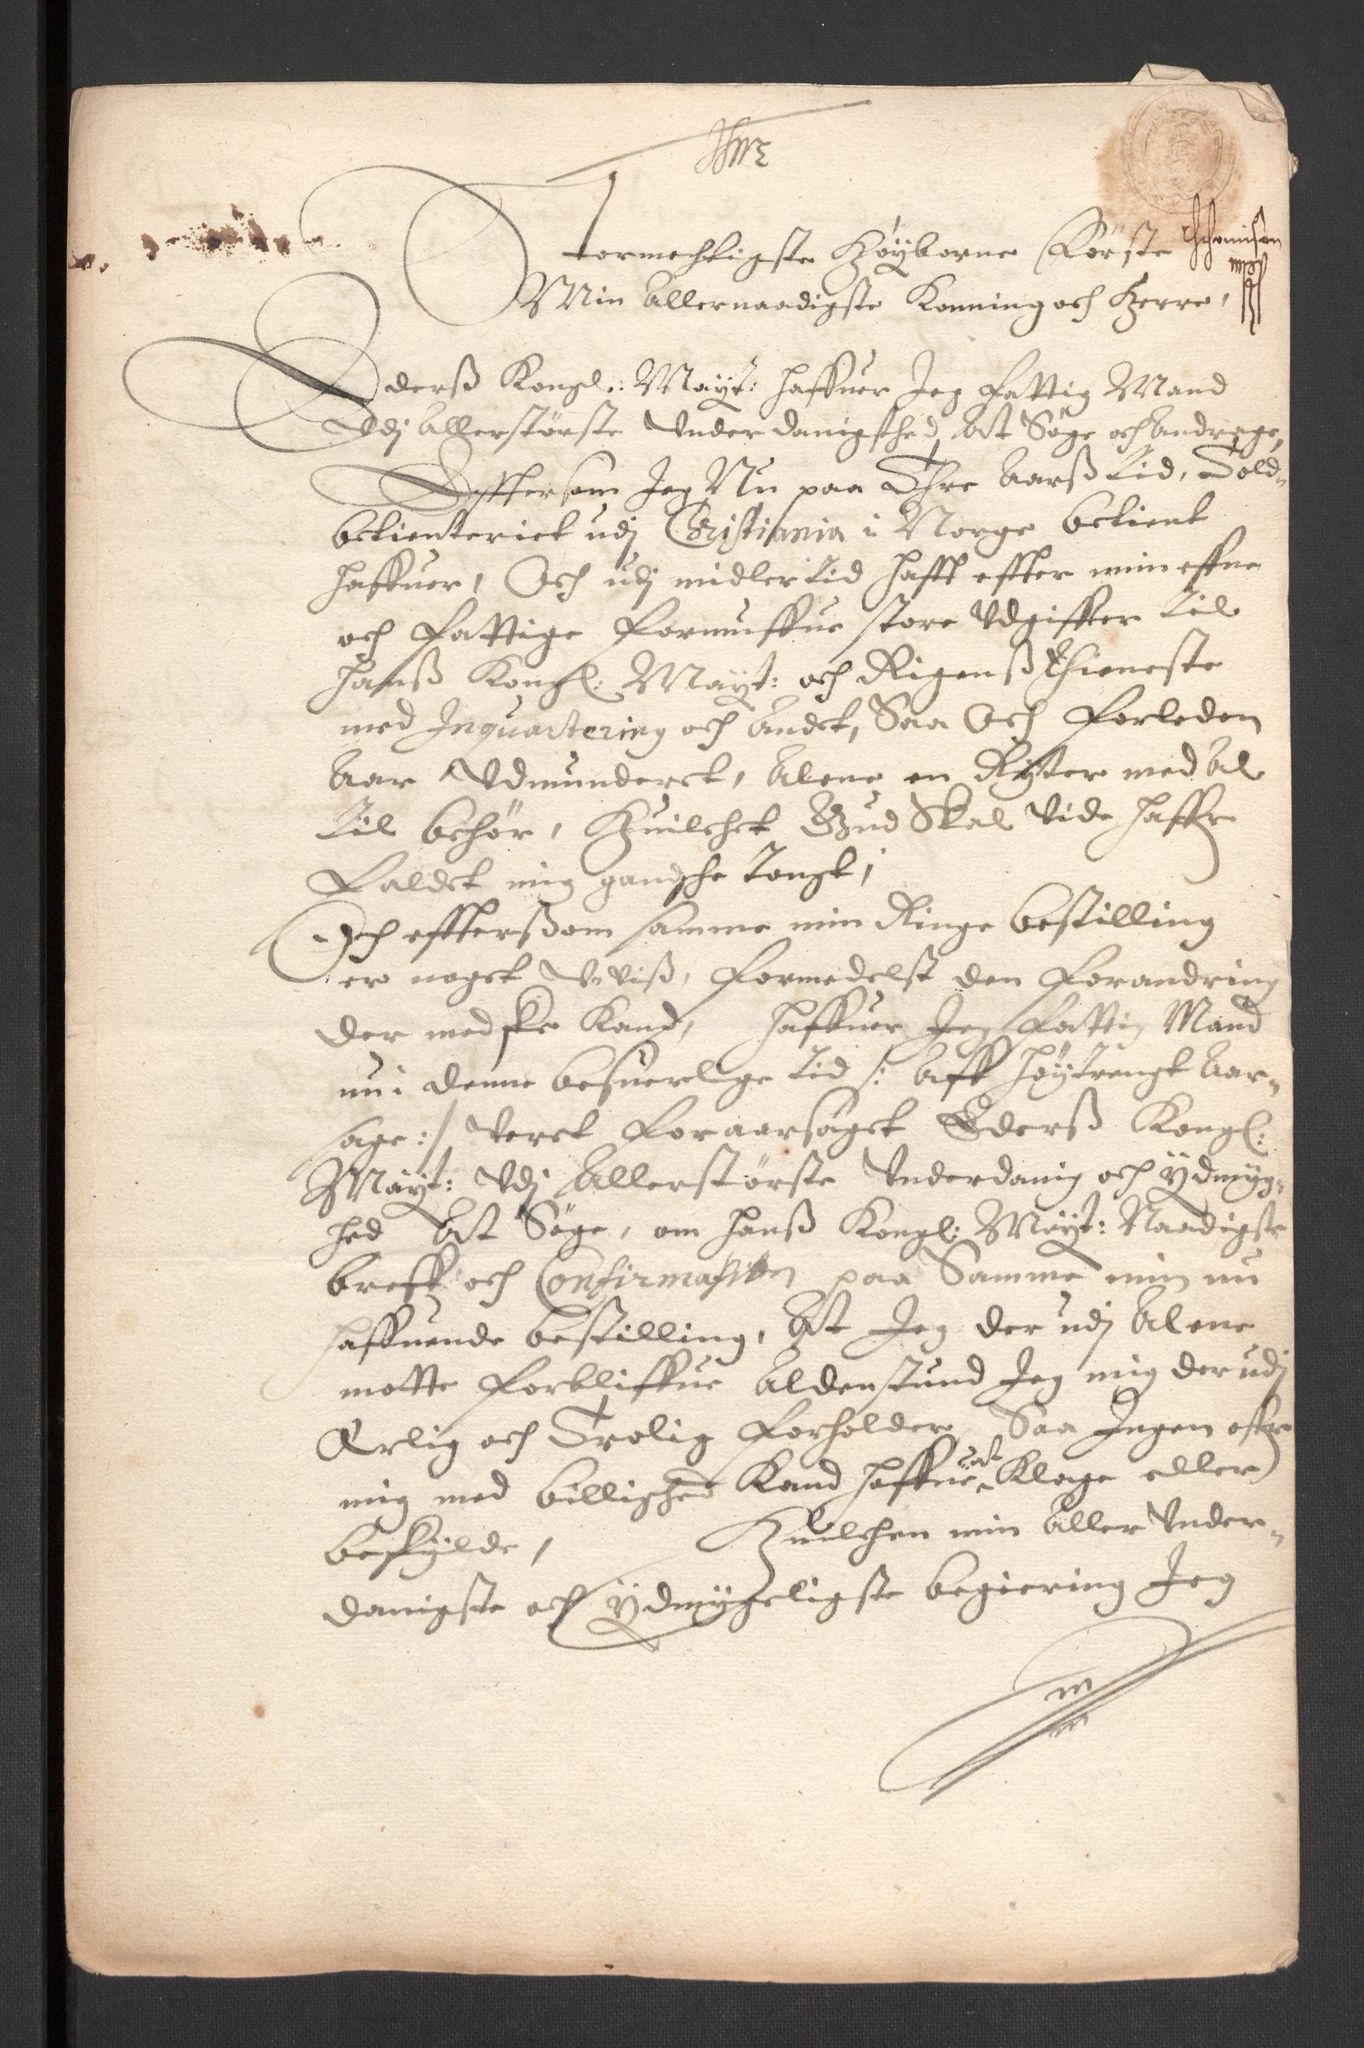 Stormechtigste Høyborne Første
Min Allernaadigste Konning och Herre,
Ederß Kongl: Mayt: haffuer Jeg fattig Mand
Udj Allerstørste Underdanigshed At Søge och Andrage,
Effthersom Jeg Nu paa Thre Aarß tid, Told-
betienteriet udj Christiania i Norge betient
haffuer, Och udj midlertid hafft effter min effne
och fattige formuffue store Udgiffter til
Hanß Kongl: Mayt: och Rigenß Thieneste
med Inquartering och Andet, Saa Och forleden
Aar Udmunderet, Alene en Rytter med Al
til behør, Huilchet Gud Skal Vide haffr
faldet mig gandsche Tongt,
Och effterßom samme min Ringe bestilling
er noget U-viß, formedelst den forandring
der med ske Kand, haffuer Jeg fattig Mand
nu i denne besuerlige tid /: Aff høytrengt Aar-
sage :/ Veret foraarsaget Ederß Kongl:
Mayt: Udj Allerstørste Underdanig och ÿdmyg-
hed At Søge, om Hanß Kongl: Mayt: Naadigste
breff och Confirmation paa Samme min nu
haffuende bestilling, At Jeg der udj Alene
motte forbliffue Aldenstund Jeg mig der udj
Ærlig och Trolig forholder, Saa Ingen offr
mig med billighed Kand haffue at Klage eller
beskylde, Huilchen min Aller Under-
danigste och ÿdmygeligste begiering Jeg